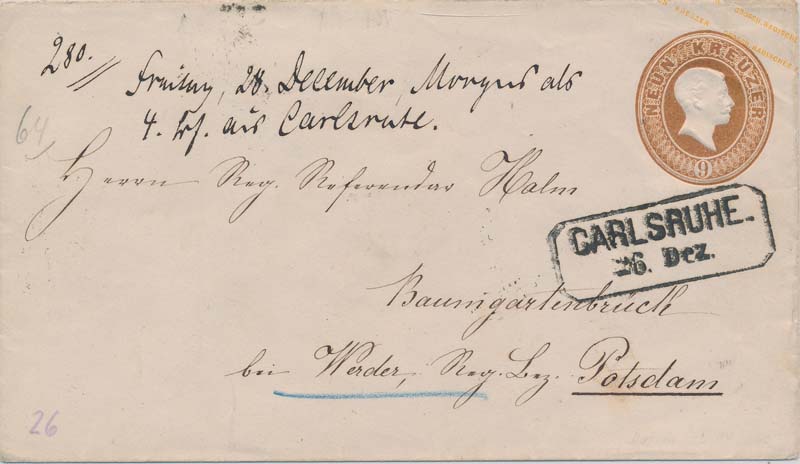 KREUZER GROSCH. BADISCHER
280.
NEUN KREUZER
9
Freitag, 28. December, Morgens als
4. Br. aus Carlsruhe.
64
Herrn Reg. Referendar Halm
CARLSRUHE.
26. Dez.
Baumgartenbrück
bei Werder, Reg. Bez. Potsdam
26